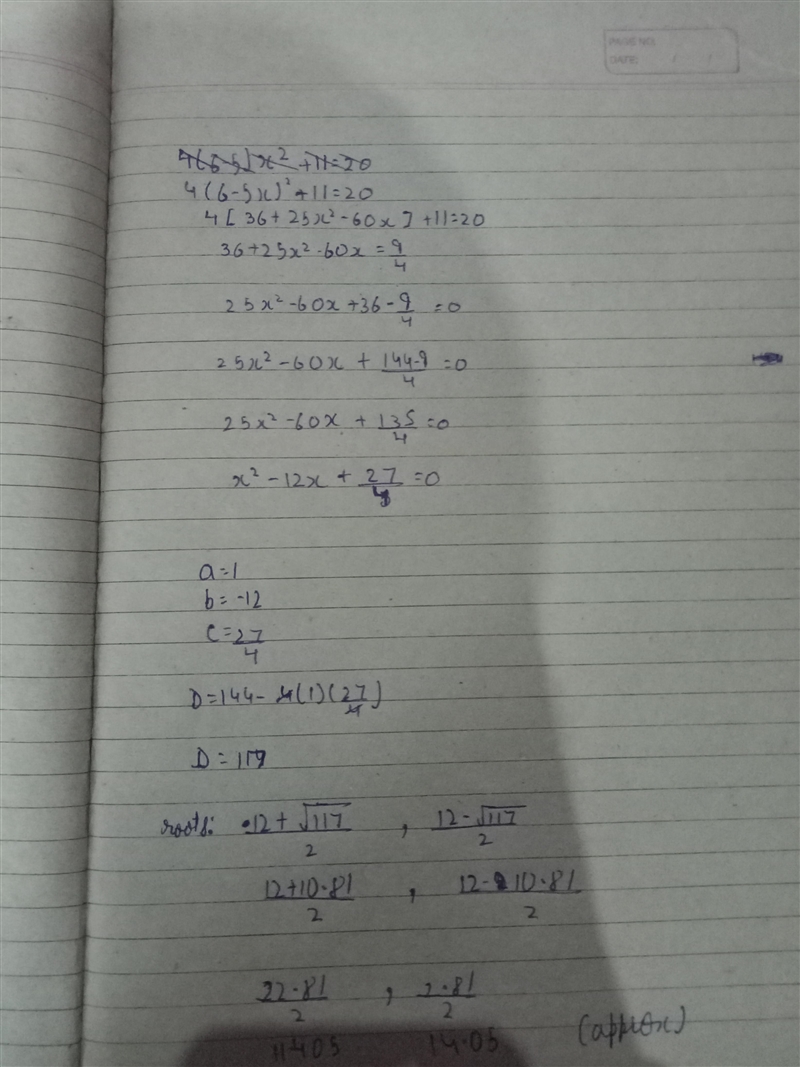 PAGE NO:
DATE: / /
4(6-5)x² +11=20
4(6-5x)² +11=20
4[36+25x²-60x] +11=20
36+25x²-60x = 9/4
25x²-60x+36-9/4 =0
25x²-60x + 144-9/4 =0
25x²-60x + 135/4 =0
x²-12x + 27/4 =0
a=1
b=-12
c=27/4
D=144-4(1)(27/4)
D=117
roots: 12+√117/2 , 12-√117/2
12+10.81/2 , 12-10.81/2
22.81/2 , 2.81/2
11405 14.05 (approx)